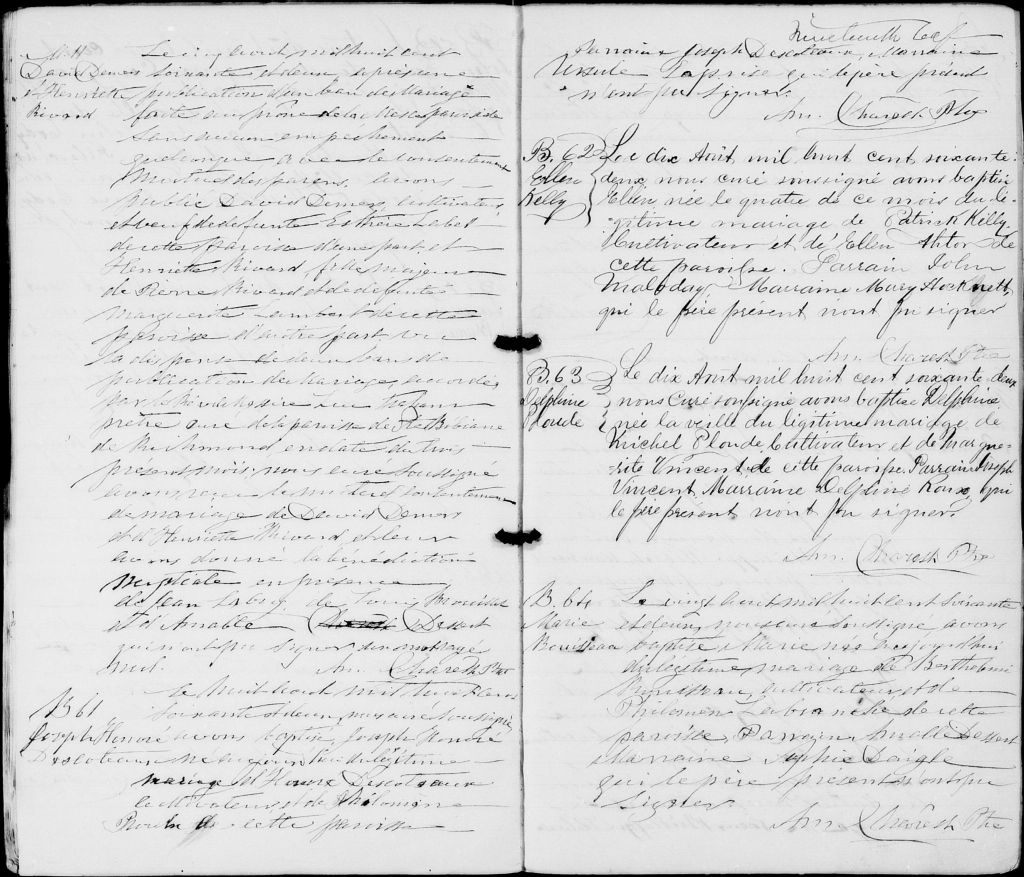 M. 11
David Demers
et Henriette
Rivard
Le cinq Aout mil huit cent
soixante et deux, après une
publication d'un ban de Mariage
faite au prône de la Messe paroissiale
sans aucun empêchement
quelconque avec le consentement
Mutuel des parens, avons
publié David Demers, cultivateur
et veuf de defunte Esthère Lebel
de cette paroisse d'une part et
Henriette Rivard fille majeure
de Pierre Rivard et de defunte
Marguerite Lambert de cette
paroisse d'autre part, vu
la dispense de deux bans de
publication de Mariage accordée
par le Révd Messire Luc
prêtre curé de la paroisse de Ste Bibiane
de Richmond en date du trois
présent mois, nous curé soussigné
avons reçu le mutuel consentement
de mariage de David Demers
et d'Henriette Rivard et leur
avons donné la bénédiction
nuptiale en présence
de Jean Labry, de Louis
et d'Amable Dessert
qui n'ont pu signer. un mot rayé
nul. Am. Charest Ptre
B 61
Joseph Honoré
Descoteaux
Le huit Aout mil huit cent
soixante et deux, nous curé soussigné
avons baptisé Joseph Honoré
né aujourd'hui du légitime
mariage d'Honoré Descoteaux
cultivateur et de Philomène
de cette paroisse
Dixneuvième feuil
Parrain Joseph Descoteaux, Marraine
Ursule Laprise qui le père présent
n'ont pu signer.
Am. Charest Ptre
B. 62
Ellen
Kelly
Le dix Août mil huit cent soixante-
deux nous curé soussigné avons baptisé
Ellen, née le quatre de ce mois du lé-
gitime mariage de Patrick Kelly
Cultivateur et de Ellen Ahtor de
cette paroisse. Parrain John
Maloday Marraine Mary Hocknett,
qui le père présent n'ont pu signer
Am. Charest Ptre
B. 63
Delphine
Ploude
Le dix Août mil huit cent soixante deux
nous Curé soussigné avons baptisé Delphine
née la veille du légitime mariage de
Michel Ploude Cultivateur et de Margue-
rite Vincent de cette paroisse. Parrain Joseph
Vincent, Marraine Delphine Roux, qui
le père présent n'ont pu signer.
Am. Charest Ptre
B. 64
Marie
Brousseau
Le vingt Aout mil huit cent soixante
et deux, nous curé soussigné, avons
baptisé Marie née aujourd'hui
du légitime mariage de Berthelmi
Brousseau, cultivateur et de
Philomène Labranche de cette
paroisse, Parrain Amable Dessert
Marraine Sophie Daigle
qui le père présent n'ont pu
signer.
Am. Charest Ptre